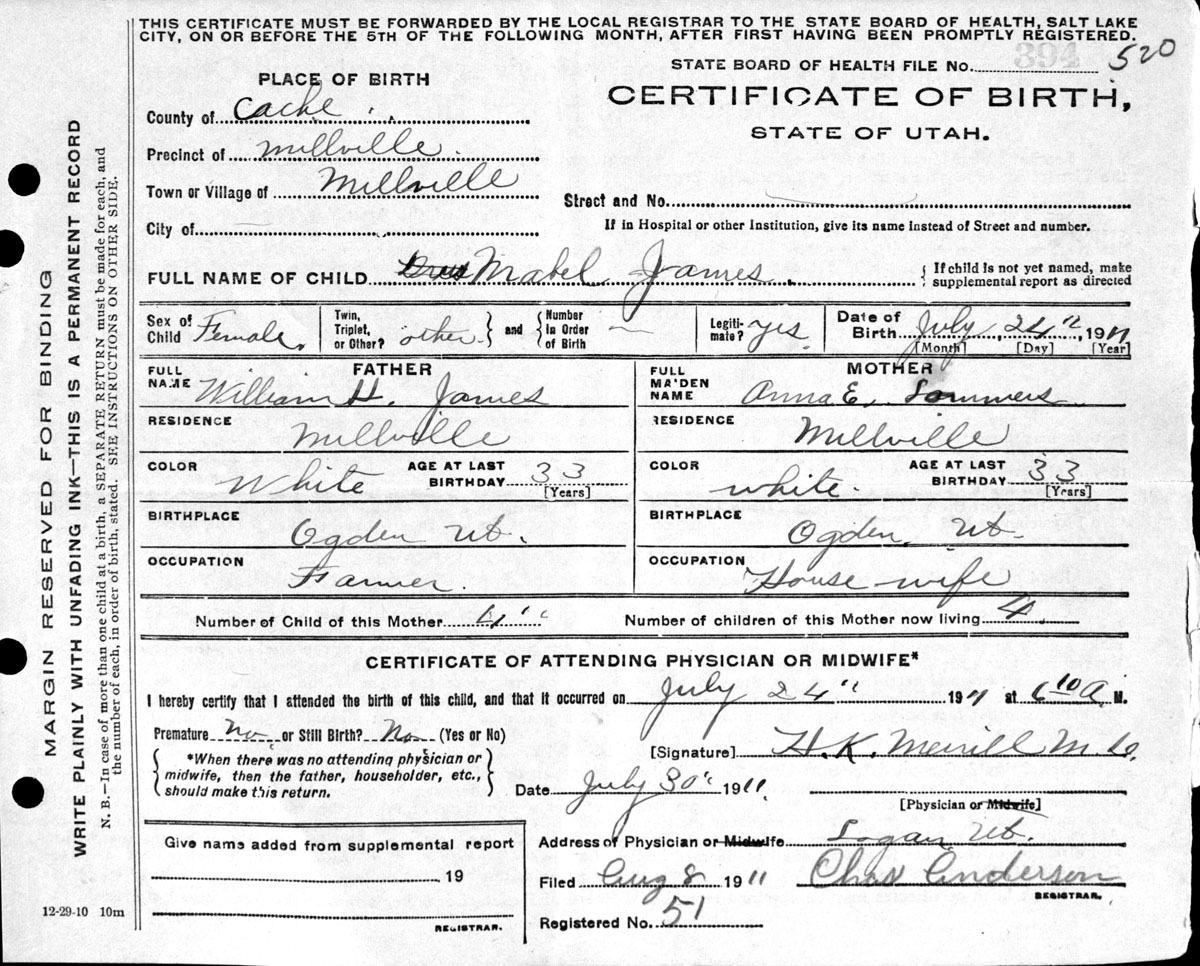 THIS CERTIFICATE MUST BE FORWARDED BY THE LOCAL REGISTRAR TO THE STATE BOARD OF HEALTH, SALT LAKE
CITY, ON OR BEFORE THE 5TH OF THE FOLLOWING MONTH, AFTER FIRST HAVING BEEN PROMPTLY REGISTERED.
STATE BOARD OF HEALTH FILE No. 394 520
PLACE OF BIRTH
CERTIFICATE OF BIRTH,
STATE OF UTAH.
County of Cache
Precinct of Millville.
Town or Village of Millville
Street and No.
City of
If in Hospital or other Institution, give its name instead of Street and number.
FULL NAME OF CHILD Mabel James. { If child is not yet named, make supplemental report as directed
Sex of Child Female. Twin, Triplet, or Other? other } and { Number In Order of Birth — Legiti-mate? yes. Date of Birth July 24" 1911
[Month] [Day] [Year]
FATHER MOTHER
FULL NAME William H. James FULL MAIDEN NAME Anna E. Sommers
RESIDENCE Millville RESIDENCE Millville
COLOR White AGE AT LAST BIRTHDAY 33 [Years] COLOR white. AGE AT LAST BIRTHDAY 33 [Years]
BIRTHPLACE Ogden Ut. BIRTHPLACE Ogden, Ut.
OCCUPATION Farmer. OCCUPATION House-wife
Number of Child of this Mother 4" Number of children of this Mother now living 4.
CERTIFICATE OF ATTENDING PHYSICIAN OR MIDWIFE*
I hereby certify that I attended the birth of this child, and that it occurred on July 24" 1911 at 6 10 A. M.
Premature No or Still Birth? No (Yes or No)
[Signature] H. K. Merrill M.D.
{ *When there was no attending physician or midwife, then the father, householder, etc., should make this return. }
Date July 30" 1911
[Physician or Midwife]
Give name added from supplemental report
19
REGISTRAR.
12-29-10 10m
Address of Physician or Midwife Logan Ut.
Filed Aug 8 1911 Chas Anderson
REGISTRAR.
Registered No. 51
MARGIN RESERVED FOR BINDING
WRITE PLAINLY WITH UNFADING INK—THIS IS A PERMANENT RECORD
N. B.—In case of more than one child at a birth, a SEPARATE RETURN must be made for each, and
the number of each, in order of birth, stated. SEE INSTRUCTIONS ON OTHER SIDE.